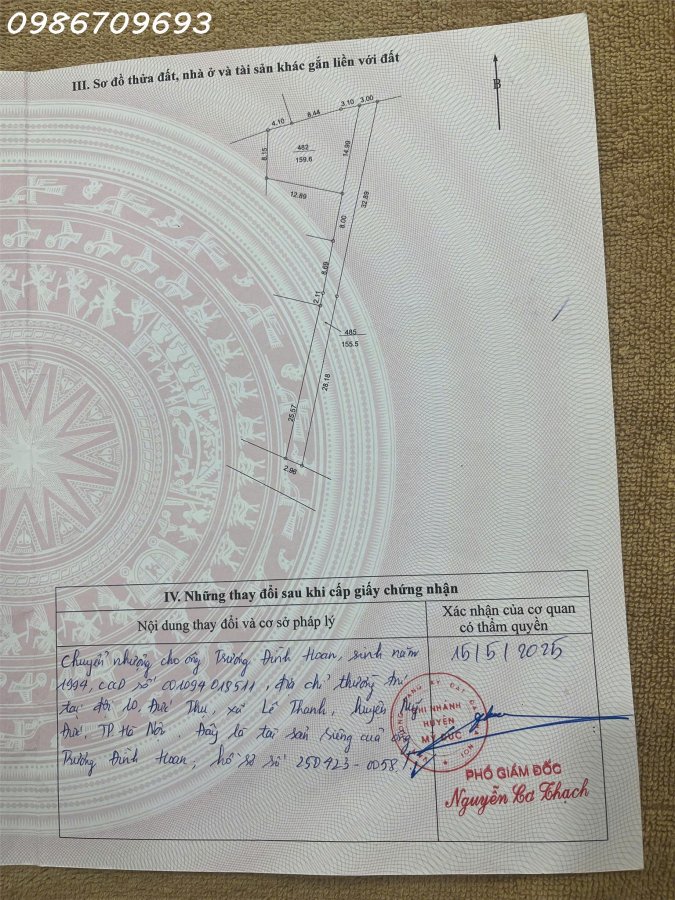 0986709693
III. Sơ đồ thửa đất, nhà ở và tài sản khác gắn liền với đất
B
4.10 8.44 3.10 3.00
8.15
482
159.6
14.99
12.89
32.89
8.00
6.69
2.11
485
155.5
28.18
25.57
2.96
IV. Những thay đổi sau khi cấp giấy chứng nhận
Nội dung thay đổi và cơ sở pháp lý
Xác nhận của cơ quan
có thẩm quyền
Chuyển nhượng cho ông Trương Đình Hoan, sinh năm
1994, CCCD số 001094018511, địa chỉ thường trú
tại đội 10, Đức Thụ, xã Lê Thanh, huyện Mỹ
Đức, TP Hà Nội. Đây là tài sản riêng của ông
Trương Đình Hoan, hồ sơ số 250423-0058
15/5/2025
CHI NHÁNH
HUYỆN
MỸ ĐỨC
PHÓ GIÁM ĐỐC
Nguyễn Cơ Thạch